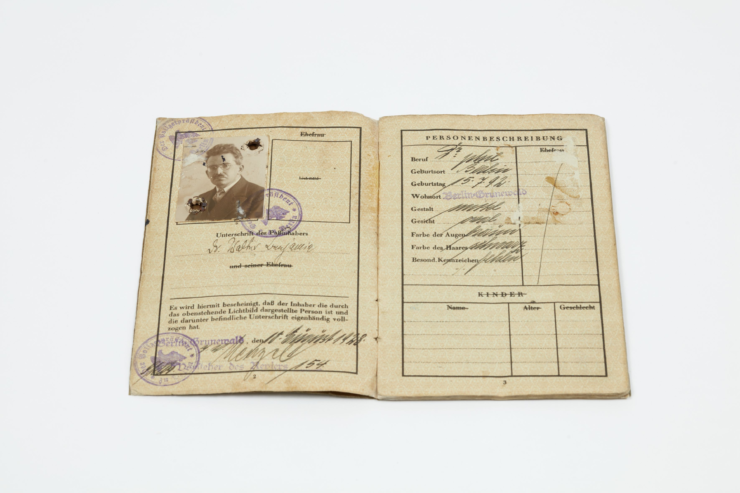 Ehefrau
Unterschrift des Paßinhabers
Dr Walter Benjamin
und seiner Ehefrau
Es wird hiermit bescheinigt, daß der Inhaber die durch
das obenstehende Lichtbild dargestellte Person ist und
die darunter befindliche Unterschrift eigenhändig voll-
zogen hat.
Berlin-Grunewald, den 10 August 1928
154
2
PERSONENBESCHREIBUNG
Ehefrau
Beruf Dr phil
Geburtsort Berlin
Geburtstag 15.7.92
Wohnort Berlin-Grunewald
Gestalt mittel
Gesicht oval
Farbe der Augen
Farbe des Haares
Besond. Kennzeichen
KINDER
Name Alter Geschlecht
3